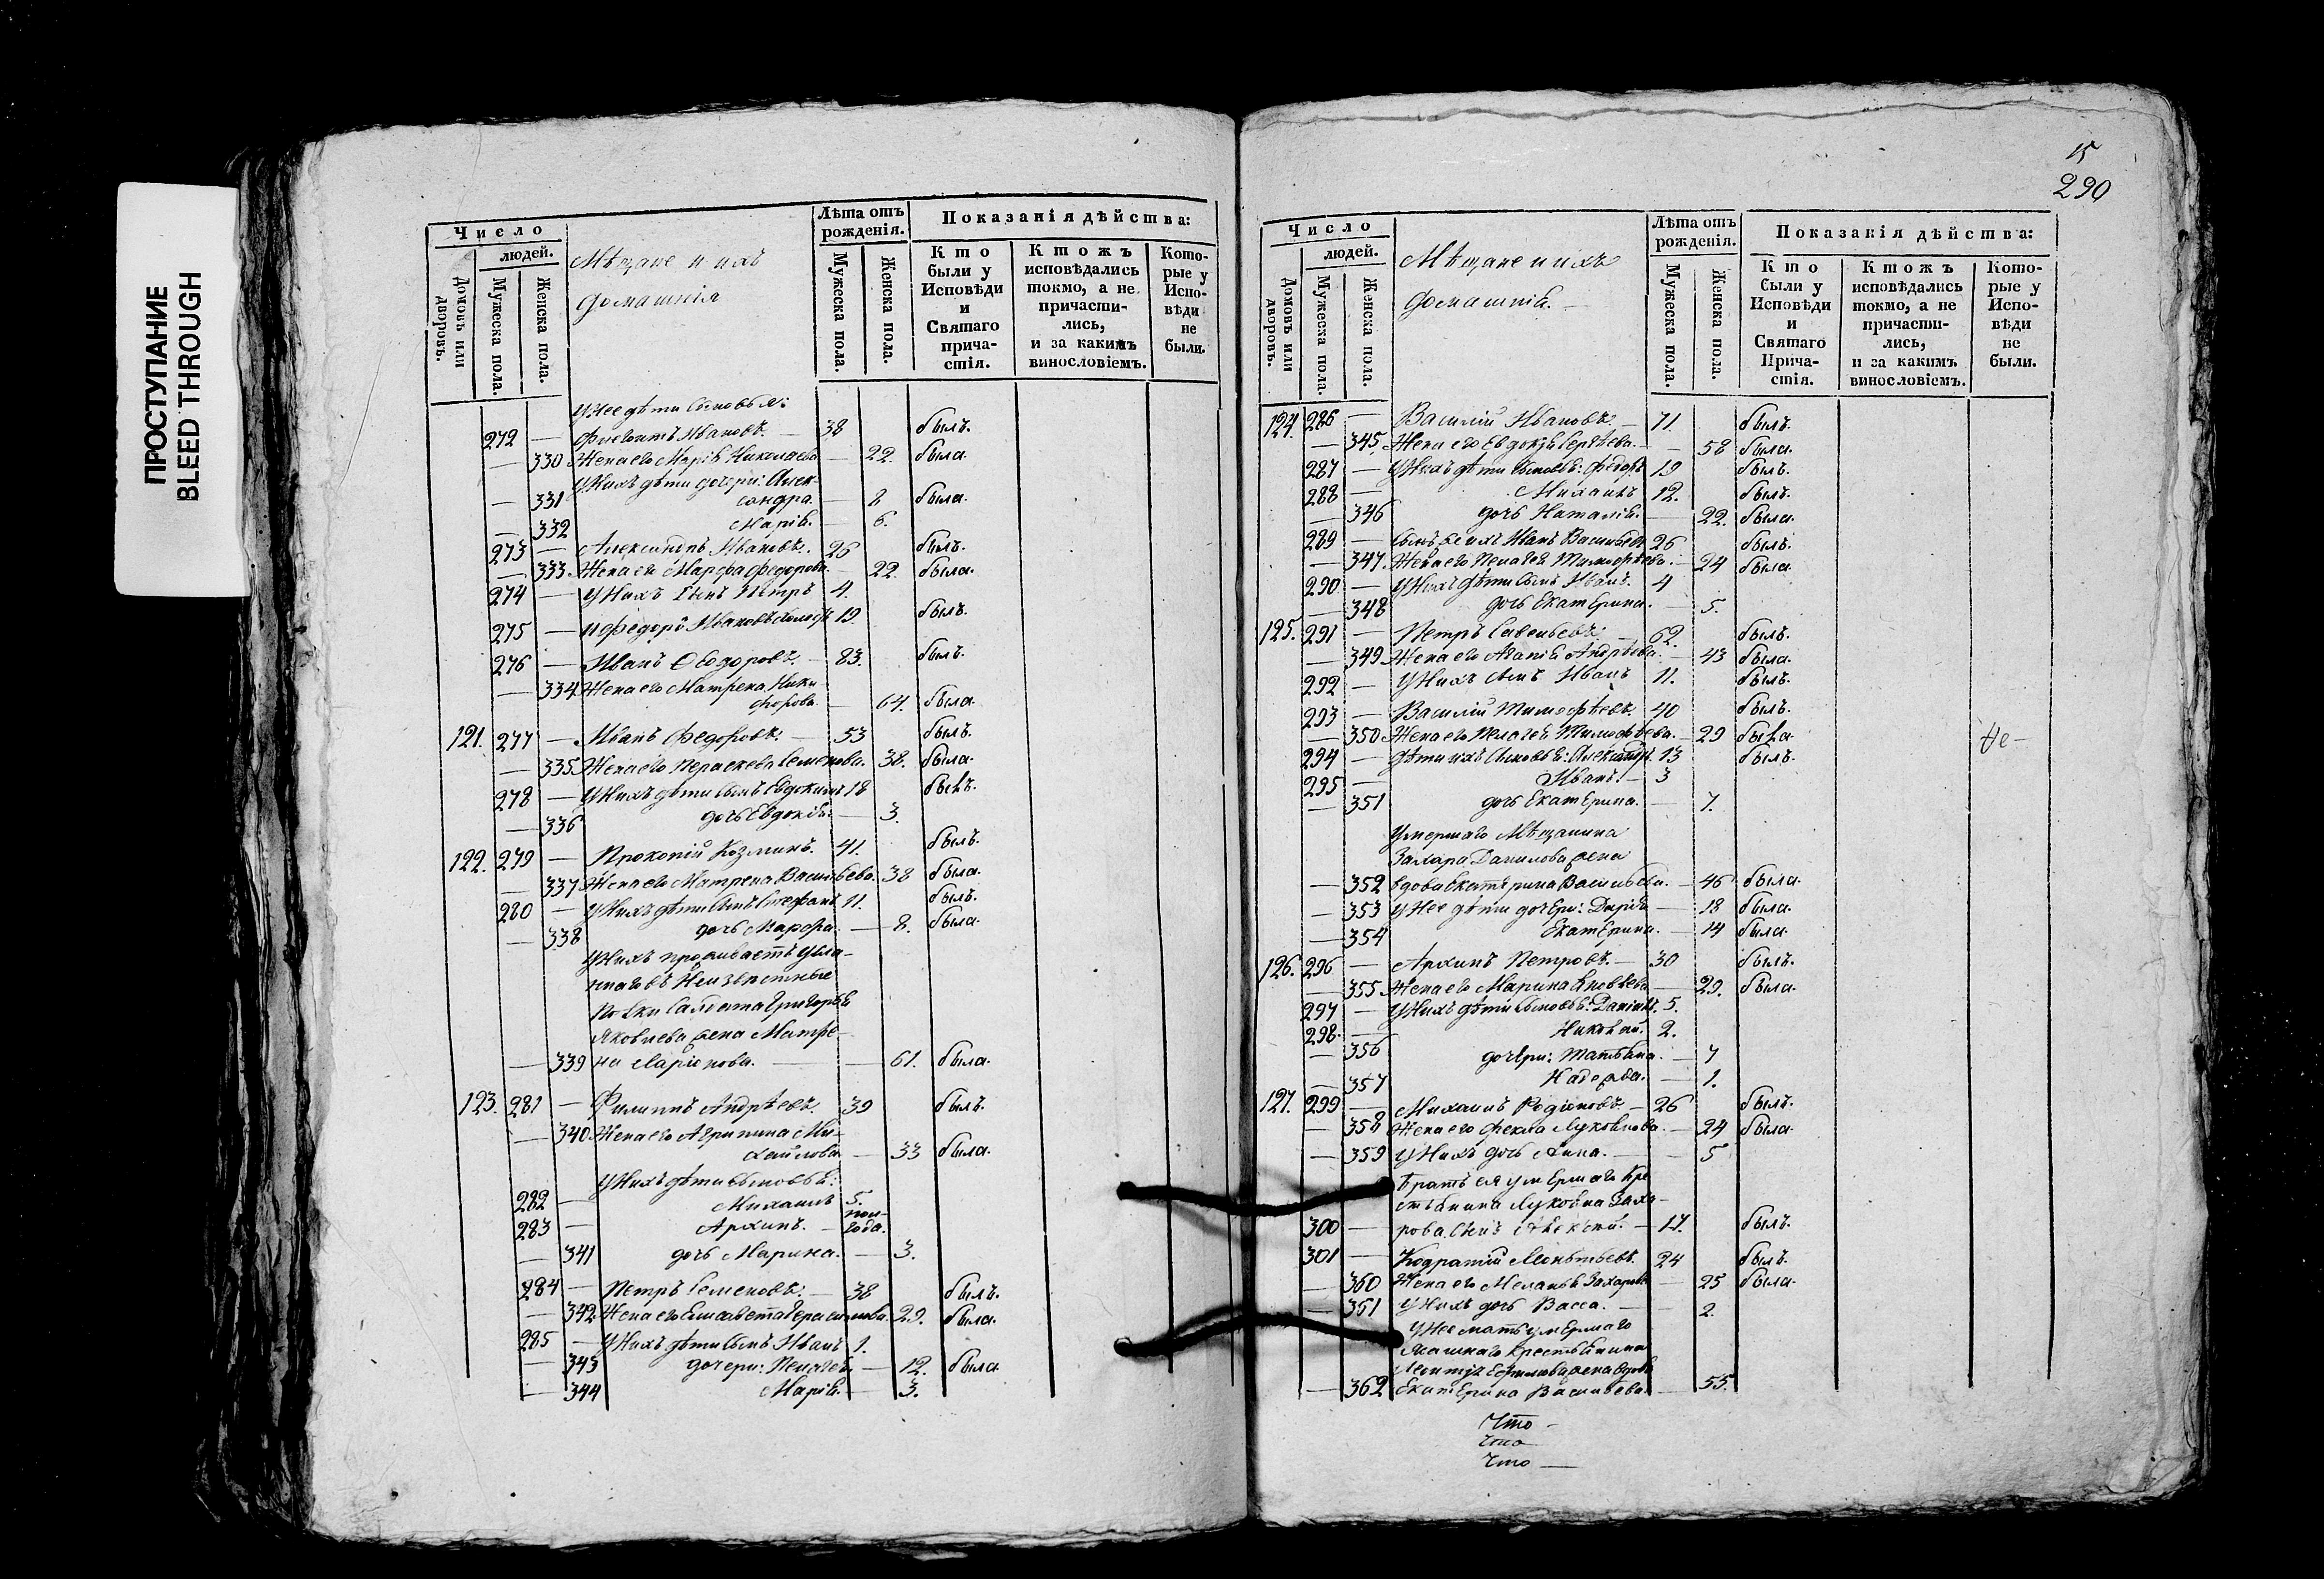 ПРОСТУПАНИЕ
BLEED THROUGH
Число
людей.
Домовъ или дворовъ.
Мужеска пола.
Женска пола.
Мѣщане и ихъ
домашнія
Лѣта отъ рожденія.
Мужеска пола.
Женска пола.
Показанія дѣйства:
Кто были у Исповѣди и Святаго причастія.
Ктожъ исповѣдались токмо, а не причастились, и за какимъ винословіемъ.
Которые у Исповѣди не были.
у нее дѣти сыновья:
272 — Ивановъ. — 38 былъ.
— 330 Жена его Марія Николаева — 22. была.
У нихъ дѣти дочери: Алек-
— 331 сандра. — 8 была.
— 332 Марія. — 6.
273 — Александръ Ивановъ. 26 былъ.
— 333 Жена его Марфа Федорова. 22. была.
274 — У нихъ сынъ Петръ 4.
275 — и Федоръ Ивановъ 19. былъ.
276 — Иванъ Ѳеодоровъ. — 83. былъ.
— 334 Жена его Матрена Ники-
форова. — 64. была.
121. 277 — Иванъ Федоровъ. — 53 былъ.
— 335 Жена его Параскева Семенова. 38. была.
278 — У нихъ дѣти сынъ Евдокимъ 18 былъ.
— 336 дочь Евдокія. — 3.
122. 279 — Прокопій Козминъ. 41. былъ.
— 337 Жена его Матрена Васильева. 38 была.
280 — У нихъ дѣти сынъ Стефанъ 11. былъ.
— 338 дочь Марфа. — 8. была.
У нихъ проживаетъ
Солдата Григорья
Яковлева жена Матре-
— 339 на Ларіонова. — — 61. была.
123. 281 — Филиппъ Андрѣевъ. 39 былъ.
— 340 Жена его Агрипина Ми-
хайлова — 33 была.
У нихъ дѣти сыновья:
282 — Михаилъ 5.
283 — Архипъ. — пол-
года.
— 341 дочь Марина. — 3.
284 — Петръ Семеновъ. — 38 былъ.
— 342 Жена его Елисавета Герасимова. 29. была.
285 — У нихъ дѣти сынъ Иванъ 1.
— 343 дочери: Пелагея — 12. была
— 344 Марія. — 3.
15
290
Число
людей.
Домовъ или дворовъ.
Мужеска пола.
Женска пола.
Мѣщане и ихъ
домашнія. —
Лѣта отъ рожденія.
Мужеска пола.
Женска пола.
Показанія дѣйства:
Кто были у Исповѣди и Святаго Причастія.
Ктожъ исповѣдались токмо, а не причастились, и за какимъ винословіемъ.
Которые у Исповѣди не были.
124. 286 — Василій Ивановъ. — 71 былъ.
— 345 Жена его Евдокія Сергѣева. — 58 была.
287 — У нихъ дѣти сыновья: Федоръ 19 былъ.
288 — Михаилъ 12. былъ.
— 346 дочь Наталія. — 22. была.
289 — Иванъ Васильевъ 26 былъ.
— 347. Жена его Пелагея Тимофѣева. — 24 была.
290 — У нихъ дѣти сынъ Иванъ. 4
— 348 дочь Екатерина. — 5.
125. 291 — Петръ Савельевъ. — 62. былъ.
— 349 Жена его Агапія Андрѣева. — 43 была.
292 — У нихъ сынъ Иванъ 11. былъ.
293 — Василій Тимофѣевъ. 40 былъ.
— 350 Жена его Пелагея Тимофѣева. — 29 была. Не —
294 — дѣти ихъ сыновья: Александръ. 13 былъ.
295 — Иванъ. — 3
— 351 дочь Екатерина. — 7.
Умершаго Мѣщанина
Захара Данилова жена
— 352 вдова Екатерина Васильева. — 46 была.
— 353 У нее дѣти дочери: Дарія — 18 была.
— 354 Екатерина. — 14 была.
126. 296 — Архипъ Петровъ. — 30 былъ.
— 355 Жена его Марина Яковлева — 29. была.
297 — У нихъ дѣти сыновья: Даніилъ. 5.
298. — Николай. 2.
— 356 дочери: Татьяна. — 7
— 357 Надежда. — 1.
127. 299 — Михаилъ Родіоновъ. — 26 былъ.
— 358 Жена его Фекла Луковнова. — 24 была.
— 359 У нихъ дочь Анна. — — 5
Братъ ея умершаго Кре-
стьянина Захо-
300 — рова сынъ Алексѣй. — 17. былъ.
301 — Кодратій Леонтьевъ. 24 былъ.
— 360 Жена его Меланья Захарова — 25 была.
— 361 У нихъ дочь Васса. — — 2.
У нее мать умершаго
Крестьянина
Леонтія Ефимова жена вдова
— 362 Екатерина Васильева. — 55.
Что —
Что
Что —